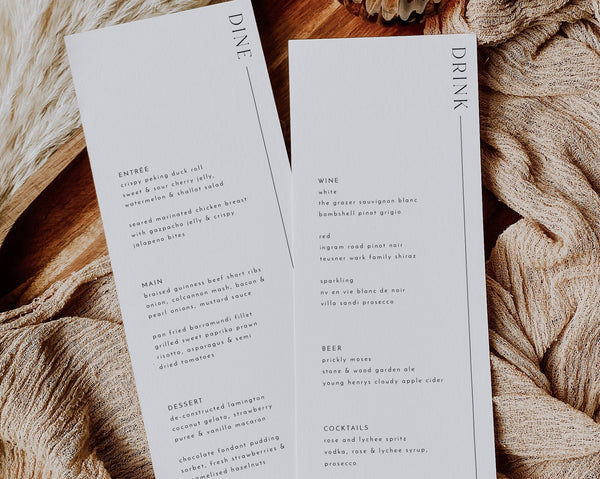 DINE
ENTRÉE
crispy peking duck roll
sweet & sour cherry jelly,
watermelon & shallot salad
seared marinated chicken breast
with gazpacho jelly & crispy
jalapeno bites
MAIN
braised guinness beef short ribs
onion, colcannon mash, bacon &
pearl onions, mustard sauce
pan fried barramundi fillet
grilled sweet paprika prawn
risotto, asparagus & semi
dried tomatoes
DESSERT
de-constructed lamington
coconut gelato, strawberry
puree & vanilla macaron
chocolate fondant pudding
sorbet, fresh strawberries &
hazelnuts
DRINK
WINE
white
the grazer sauvignon blanc
bombshell pinot grigio
red
ingram road pinot noir
teusner work family shiraz
sparkling
nv en vie blanc de noir
villa sandi prosecco
BEER
prickly moses
stone & wood garden ale
young henrys cloudy apple cider
COCKTAILS
rose and lychee spritz
vodka, rose & lychee syrup,
prosecco